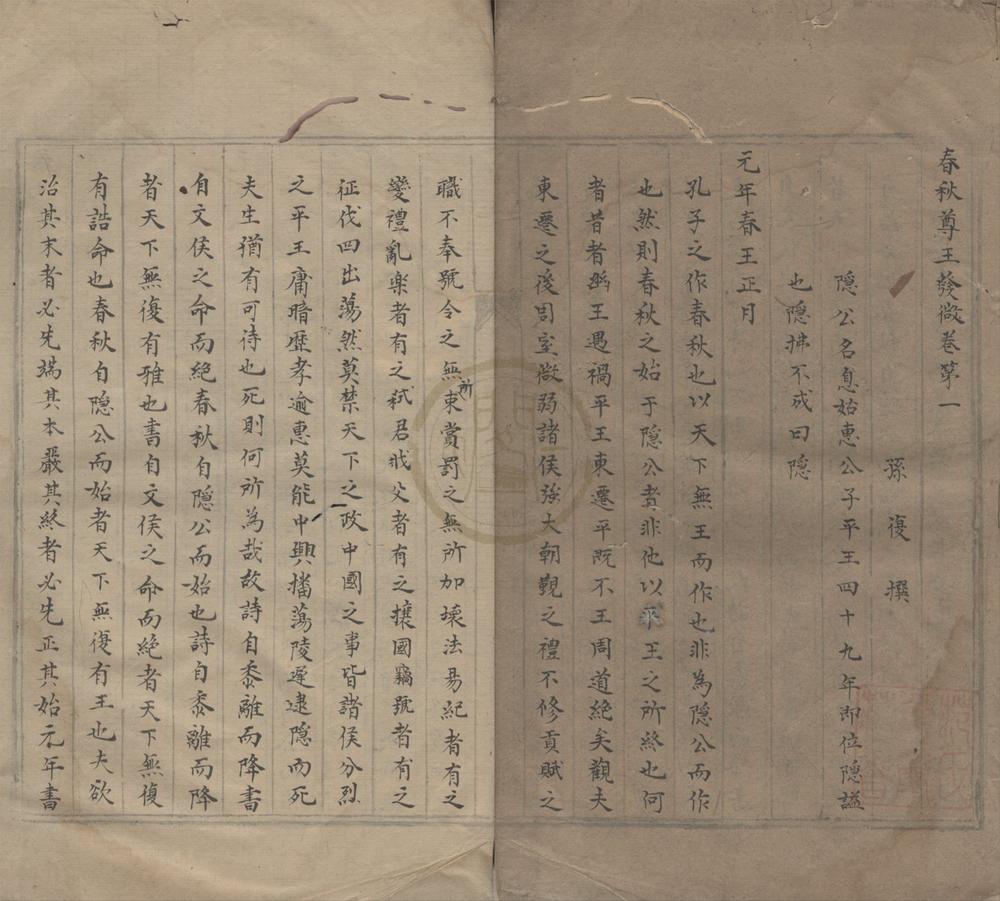 春秋尊王發微卷第一
孫復撰
隱公名息姑惠公子平王四十九年即位隱謚
也隱拂不成曰隱
元年春王正月
孔子之作春秋也以天下無王而作也非為隱公而作
也然則春秋之始于隱公者非他以平王之所終也何
者昔者幽王遇禍平王東遷平既不王周道絶矣觀夫
東遷之後周室微弱諸侯強大朝覲之禮不修貢賦之
職不奉號令之無所束賞罰之無所加壞法易紀者有之
變禮亂楽者有之弒君戕父者有之攘國竊號者有之
征伐四出蕩然莫禁天下之政中國之事皆諸侯分烈
之平王庸暗歴孝逾惠莫能中興播蕩陵遲逮隱而死
夫生猶有可待也死則何所為哉故詩自黍離而降書
自文侯之命而絶春秋自隱公而始也詩自黍離而降
者天下無復有雅也書自文侯之命而絶者天下無復
有誥命也春秋自隱公而始者天下無復有王也夫欲
治其末者必先端其本嚴其終者必先正其始元年書